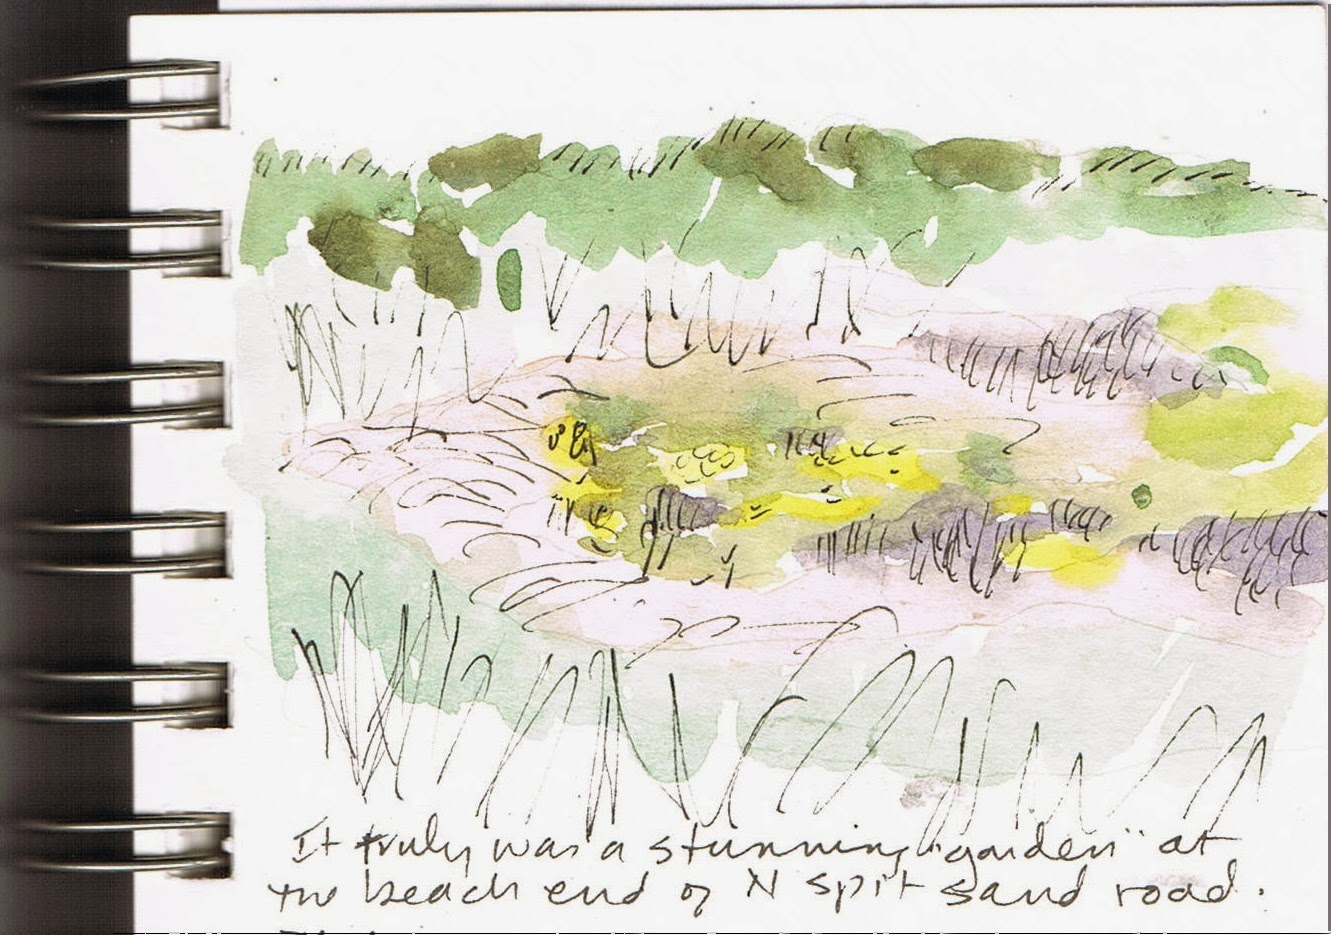 It truly was a stunning "garden" at
the beach end of N Spit sand road.